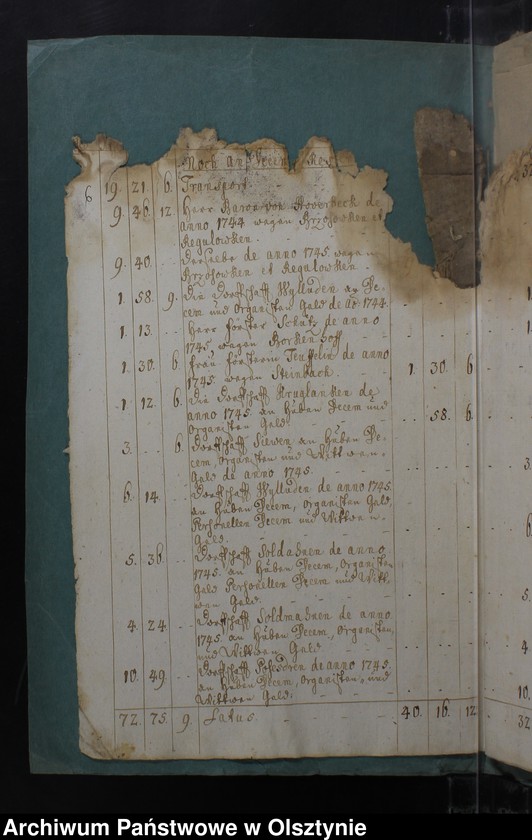 Noch an
6 19. 21. 6. Transport
9. 46. 12. Herr Baron von Hoverbeck de
anno 1744 wegen Brzosowken et
Regulowken.
9. 40. Derselbe de anno 1745. wegen
Brzosowken et Regulowken.
1. 58. 9. Die Dorffschafft Wyllüden an De-
cem und Organisten Geld de Ao 1744
1. 13. Herr Förster Schultz de anno
1745. wegen Borken
1. 30. 6 Frau Försterin de anno 1. 30. 6
1745 wegen Steinbach.
1. 12. 6. Die Dorffschafft Kruglanken de
anno 1745. an Huben Decem und 58. 6.
Organisten Geld
3. 6. Dorffschafft Siewen an Huben De-
cem, Organisten und Wittwen-
Geld de anno 1745.
6. 14. Dorffschafft Wyllüden de anno 1745.
an Huben Decem, Organisten Geld,
Personellen Decem und Wittwen-
Geld.
5. 36. Dorffschafft Soldahnen de anno
1745. an Huben Decem, Organisten
Geld Personellen Decem und Witt-
wen Geld.
4. 24. Dorffschafft Soldmahnen de anno
1745. an Huben Decem, Organisten,
und Wittwen Geld
10. 49. Dorffschafft de anno 1745.
an Huben Decem, Organisten, und
Wittwen Geld.
72. 75. 9. Latus. 40. 16. 12
32
1.
1.
3.
6.
5.
4.
10.
32
Archiwum Państwowe w Olsztynie